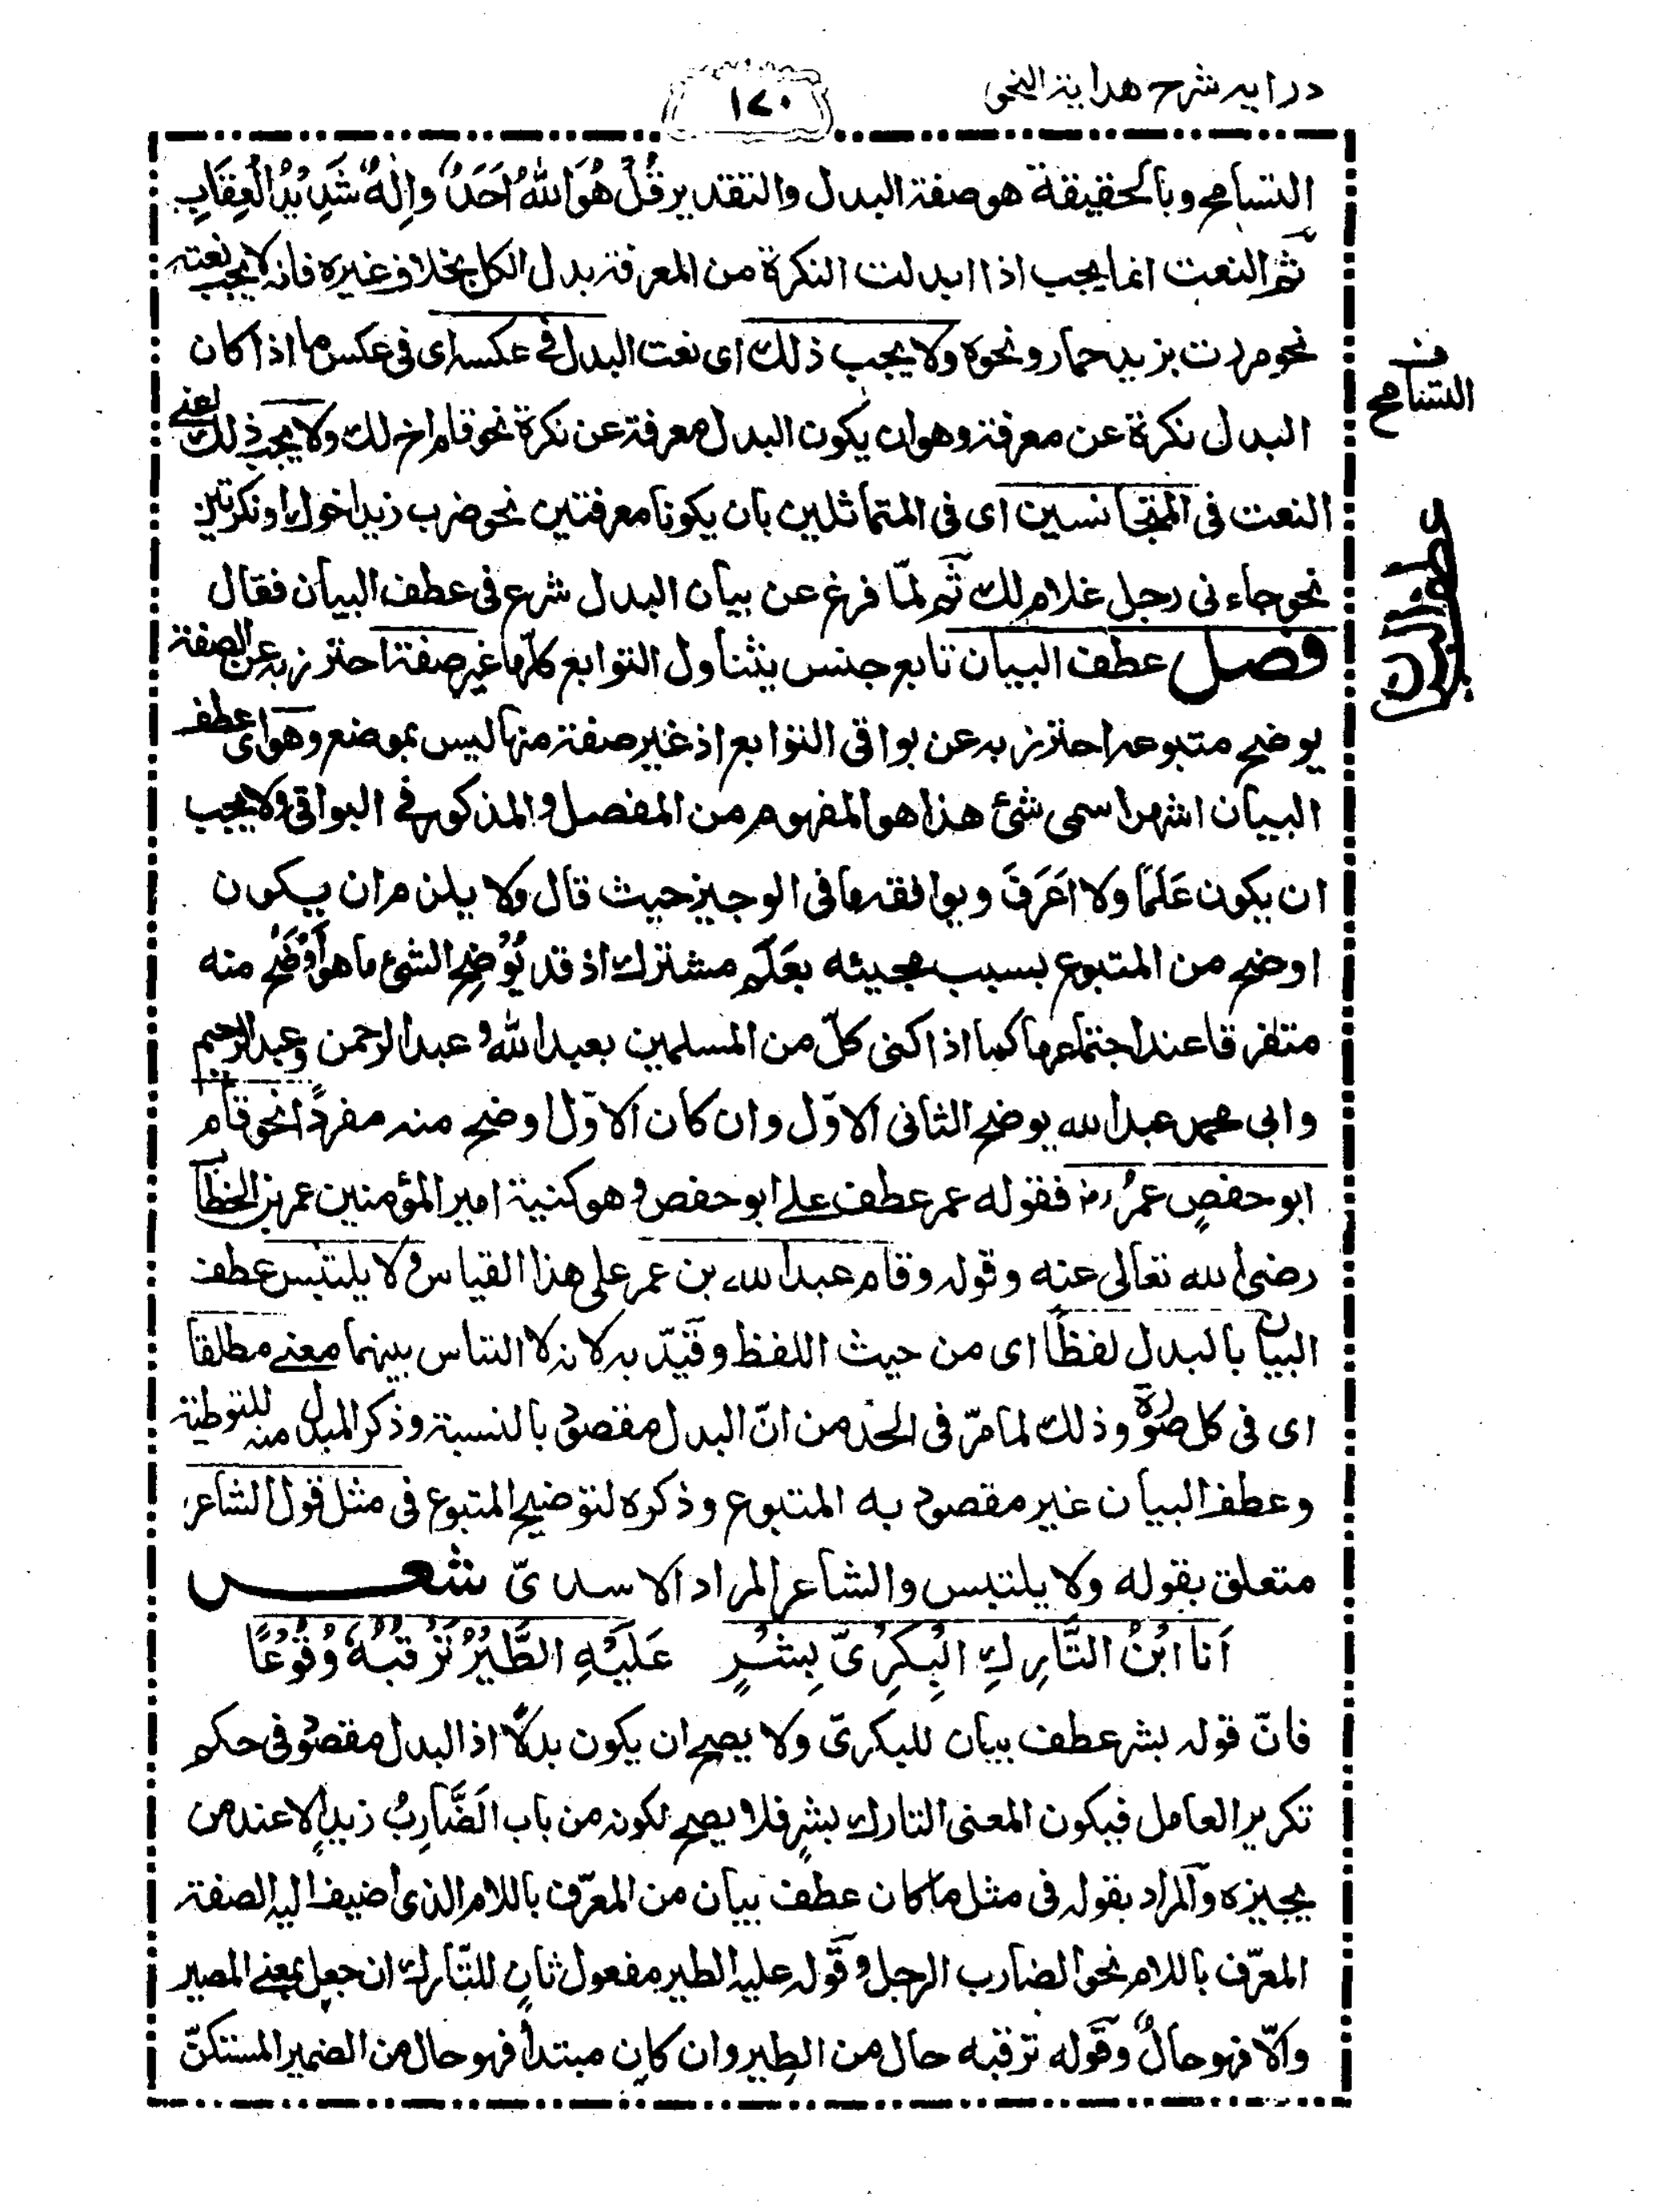 درايه شرح هداية النحو
١٧٠
التسامح وبالحقيقة هو صفة البدل والتقدير قُلْ هُوَ اللهُ اَحَدٌ وإلهٌ شَدِيْدُ الْعِقَابِ
ثم النعت انما يجب اذا ابدلت النكرة من المعرفة بدل الكل بخلاف غيره فانه لا يجب نعته
نحو مررت بزيد حمار ونحوه ولا يجب ذلك اى نعت البدل فى عكسه اى فى عكس ما اذا كان
البدل نكرة عن معرفة وهو ان يكون البدل معرفة عن نكرة نحو قام اخ لك ولا يجب ذلك يعنى
النعت فى المتجانسين اى فى المتماثلين بان يكونا معرفتين نحو ضرب زيد اخوك او نكرتين
نحو جاءنى رجل غلام لك ثم لمّا فرغ عن بيان البدل شرع فى عطف البيان فقال
فصل عطف البيان تابع جنس يتناول التوابع كلّها غير صفة احترز به عن الصفة
يوضح متبوعه احترز به عن بواقى التوابع اذ غير صفة منها ليس بموضع وهو اى عطف
البيان اشهر اسمى شئ هذا هو المفهوم من المفصل والمذكور فى البواقى ولا يجب
ان يكون عَلَمًا ولا اَعرَفَ ويوافقه ما فى الوجيز حيث قال ولا يلزم ان يكون
اوضح من المتبوع بسبب مجيئه بعَلَمٍ مشترك اذ قد يُوْضِحُ الشئ ما هو أَوْضَحُ منه
متفرقا عند اجتماعهما كما اذا كنى كلّ من المسلمين بعبد الله وعبد الرحمن وعبد الرحيم
وابى محمد عبد الله يوضح الثانى الاوّل وان كان الاوّل اوضح منه مفردًا نحو قام
ابو حفصٍ عمرُ رض فقوله عمر عطف على ابو حفص وهو كنية امير المؤمنين عمر بن الخطاب
رضى الله تعالى عنه وقوله وقام عبد الله بن عمر على هذا القياس ولا يلتبس عطف
البيان بالبدل لفظًا اى من حيث اللفظ وقَيّد به لانه لا التباس بينهما معنى مطلقا
اى فى كل صورة وذلك لما مرّ فى الحد من انّ البدل مقصود بالنسبة وذكر المبدل منه للتوطية
وعطف البيان غير مقصود به المتبوع وذكره لتوضيح المتبوع فى مثل قول الشاعر
متعلق بقوله ولا يلتبس والشاعر المراد الاسدىّ شعر
اَنَا ابْنُ التَّارِكِ الْبِكرِىّ بِشْرٍ عَلَيْهِ الطَّيْرُ تَرْقُبُهُ وُقُوْعًا
فانّ قوله بشر عطف بيان للبكرىّ ولا يصح ان يكون بدلًا اذ البدل مقصود فى حكم
تكرير العامل فيكون المعنى التارك بشرٍ فلا يصح لكونه من باب اَلضَّارِبُ زيدٍ الا عند من
يجيزه والمراد بقوله فى مثل ما كان عطف بيان من المعرّف باللام الذى اضيف اليه الصفة
المعرّف باللام نحو الضارب الرجل وقوله عليه الطير مفعول ثانٍ للتّارك ان جعل بمعنى المصير
والّا فهو حالٌ وقوله ترقبه حال من الطير وان كان مبتدأ فهو حال من الضمير المستكنّ
ف
التسامح
عطف البيان